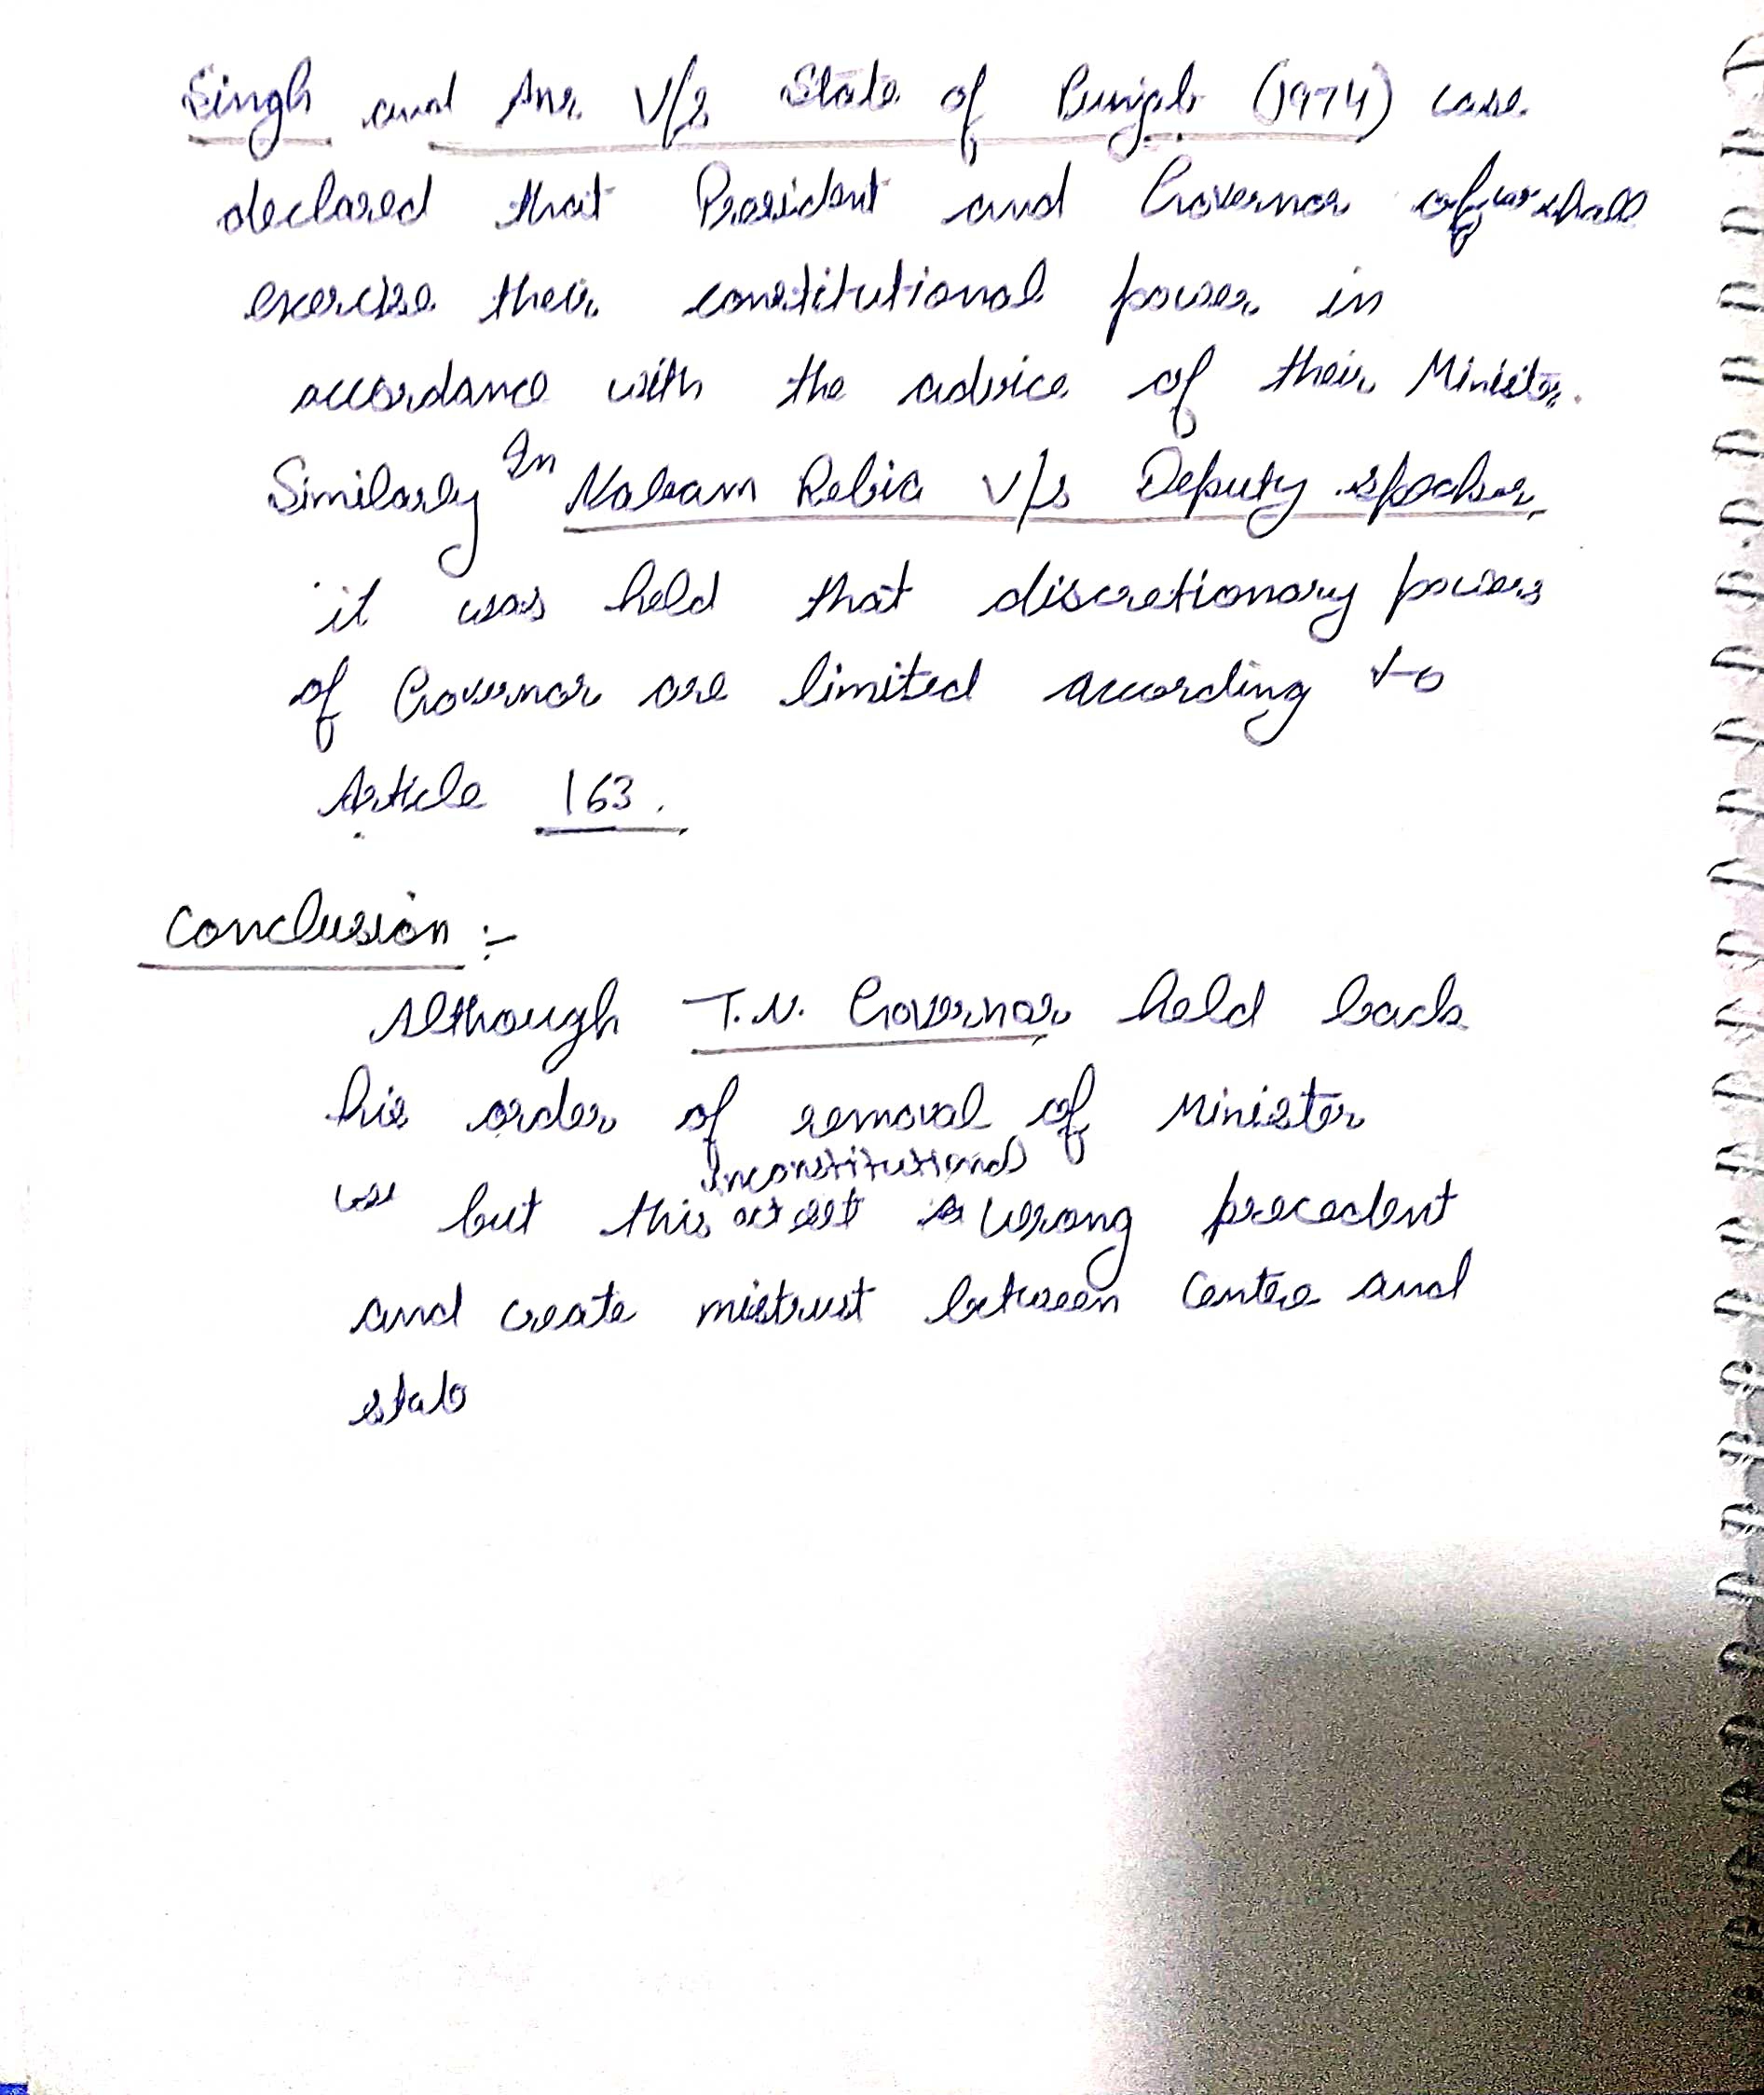 Singh and Anr V/s State of Punjab (1974) case
declared that President and Governor of shall
exercise their constitutional power in
accordance with the advice of their Minister.
Similarly In Nabam Rebia V/s Deputy speaker,
it was held that discretionary powers
of Governor are limited according to
Article 163.
Conclusion :-
Although T.N. Governor held back
his order of removal of Minister
inconstitutional
but this act set wrong precedent
and create mistrust between Centre and
state